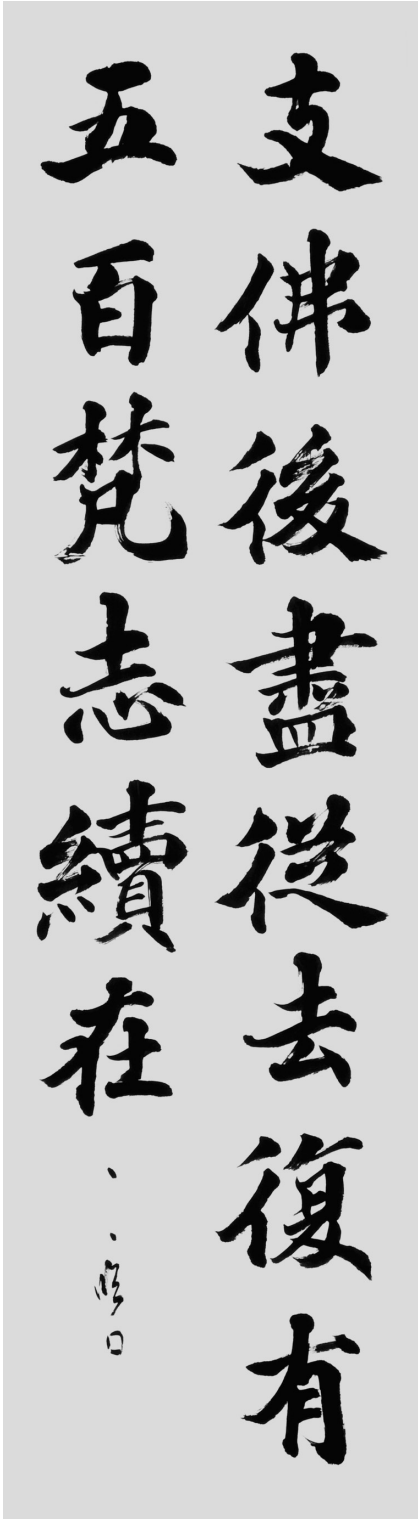 支佛後盡従去復有
五百梵志續在